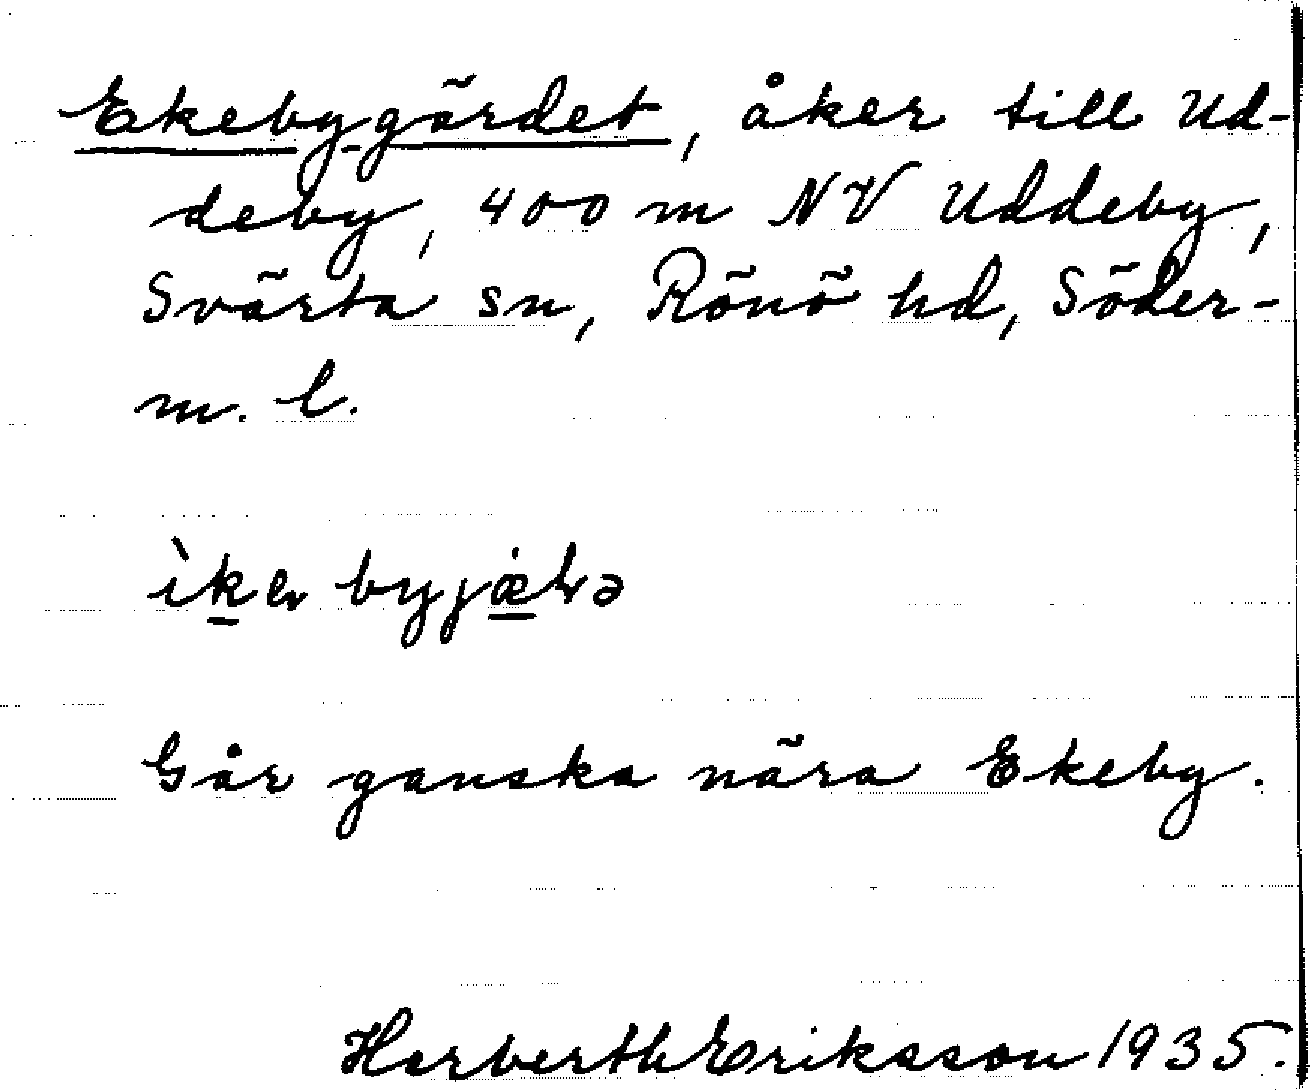 Ekebygärdet, åker till Ud-
deby, 400 m NV Uddeby,
Svärta sn, Rönö hd, Söder-
m. l.
Går ganska nära Ekeby.
Herberth Eriksson 1935.